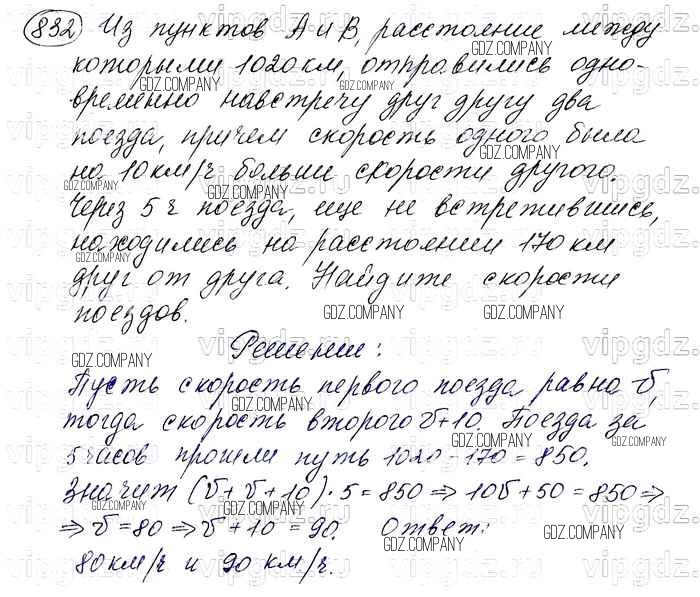 832 Из пунктов А и В, расстояние между
GDZ.COMPANY
которыми 1020 км, отправились одно-
GDZ.COMPANY GDZ.COMPANY
временно навстречу друг другу два
поезда, причем скорость одного была
GDZ.COMPANY
на 10 км/ч больше скорости другого.
GDZ.COMPANY GDZ.COMPANY
Через 5 ч поезда, еще не встретившись,
находились на расстоянии 170 км
GDZ.COMPANY GDZ.COMPANY
друг от друга. Найдите скорости
поездов.
GDZ.COMPANY GDZ.COMPANY
Решение:
GDZ.COMPANY
Пусть скорость первого поезда равна v,
GDZ.COMPANY
тогда скорость второго v+10. Поезда за
GDZ.COMPANY GDZ.COMPANY
5 часов прошли путь 1020-170=850.
Значит (v+v+10)·5=850 ⇒ 10v+50=850 ⇒
GDZ.COMPANY
⇒ v=80 ⇒ v+10=90. Ответ:
GDZ.COMPANY
80 км/ч и 90 км/ч.
GDZ.COMPANY
vipgdz.ru